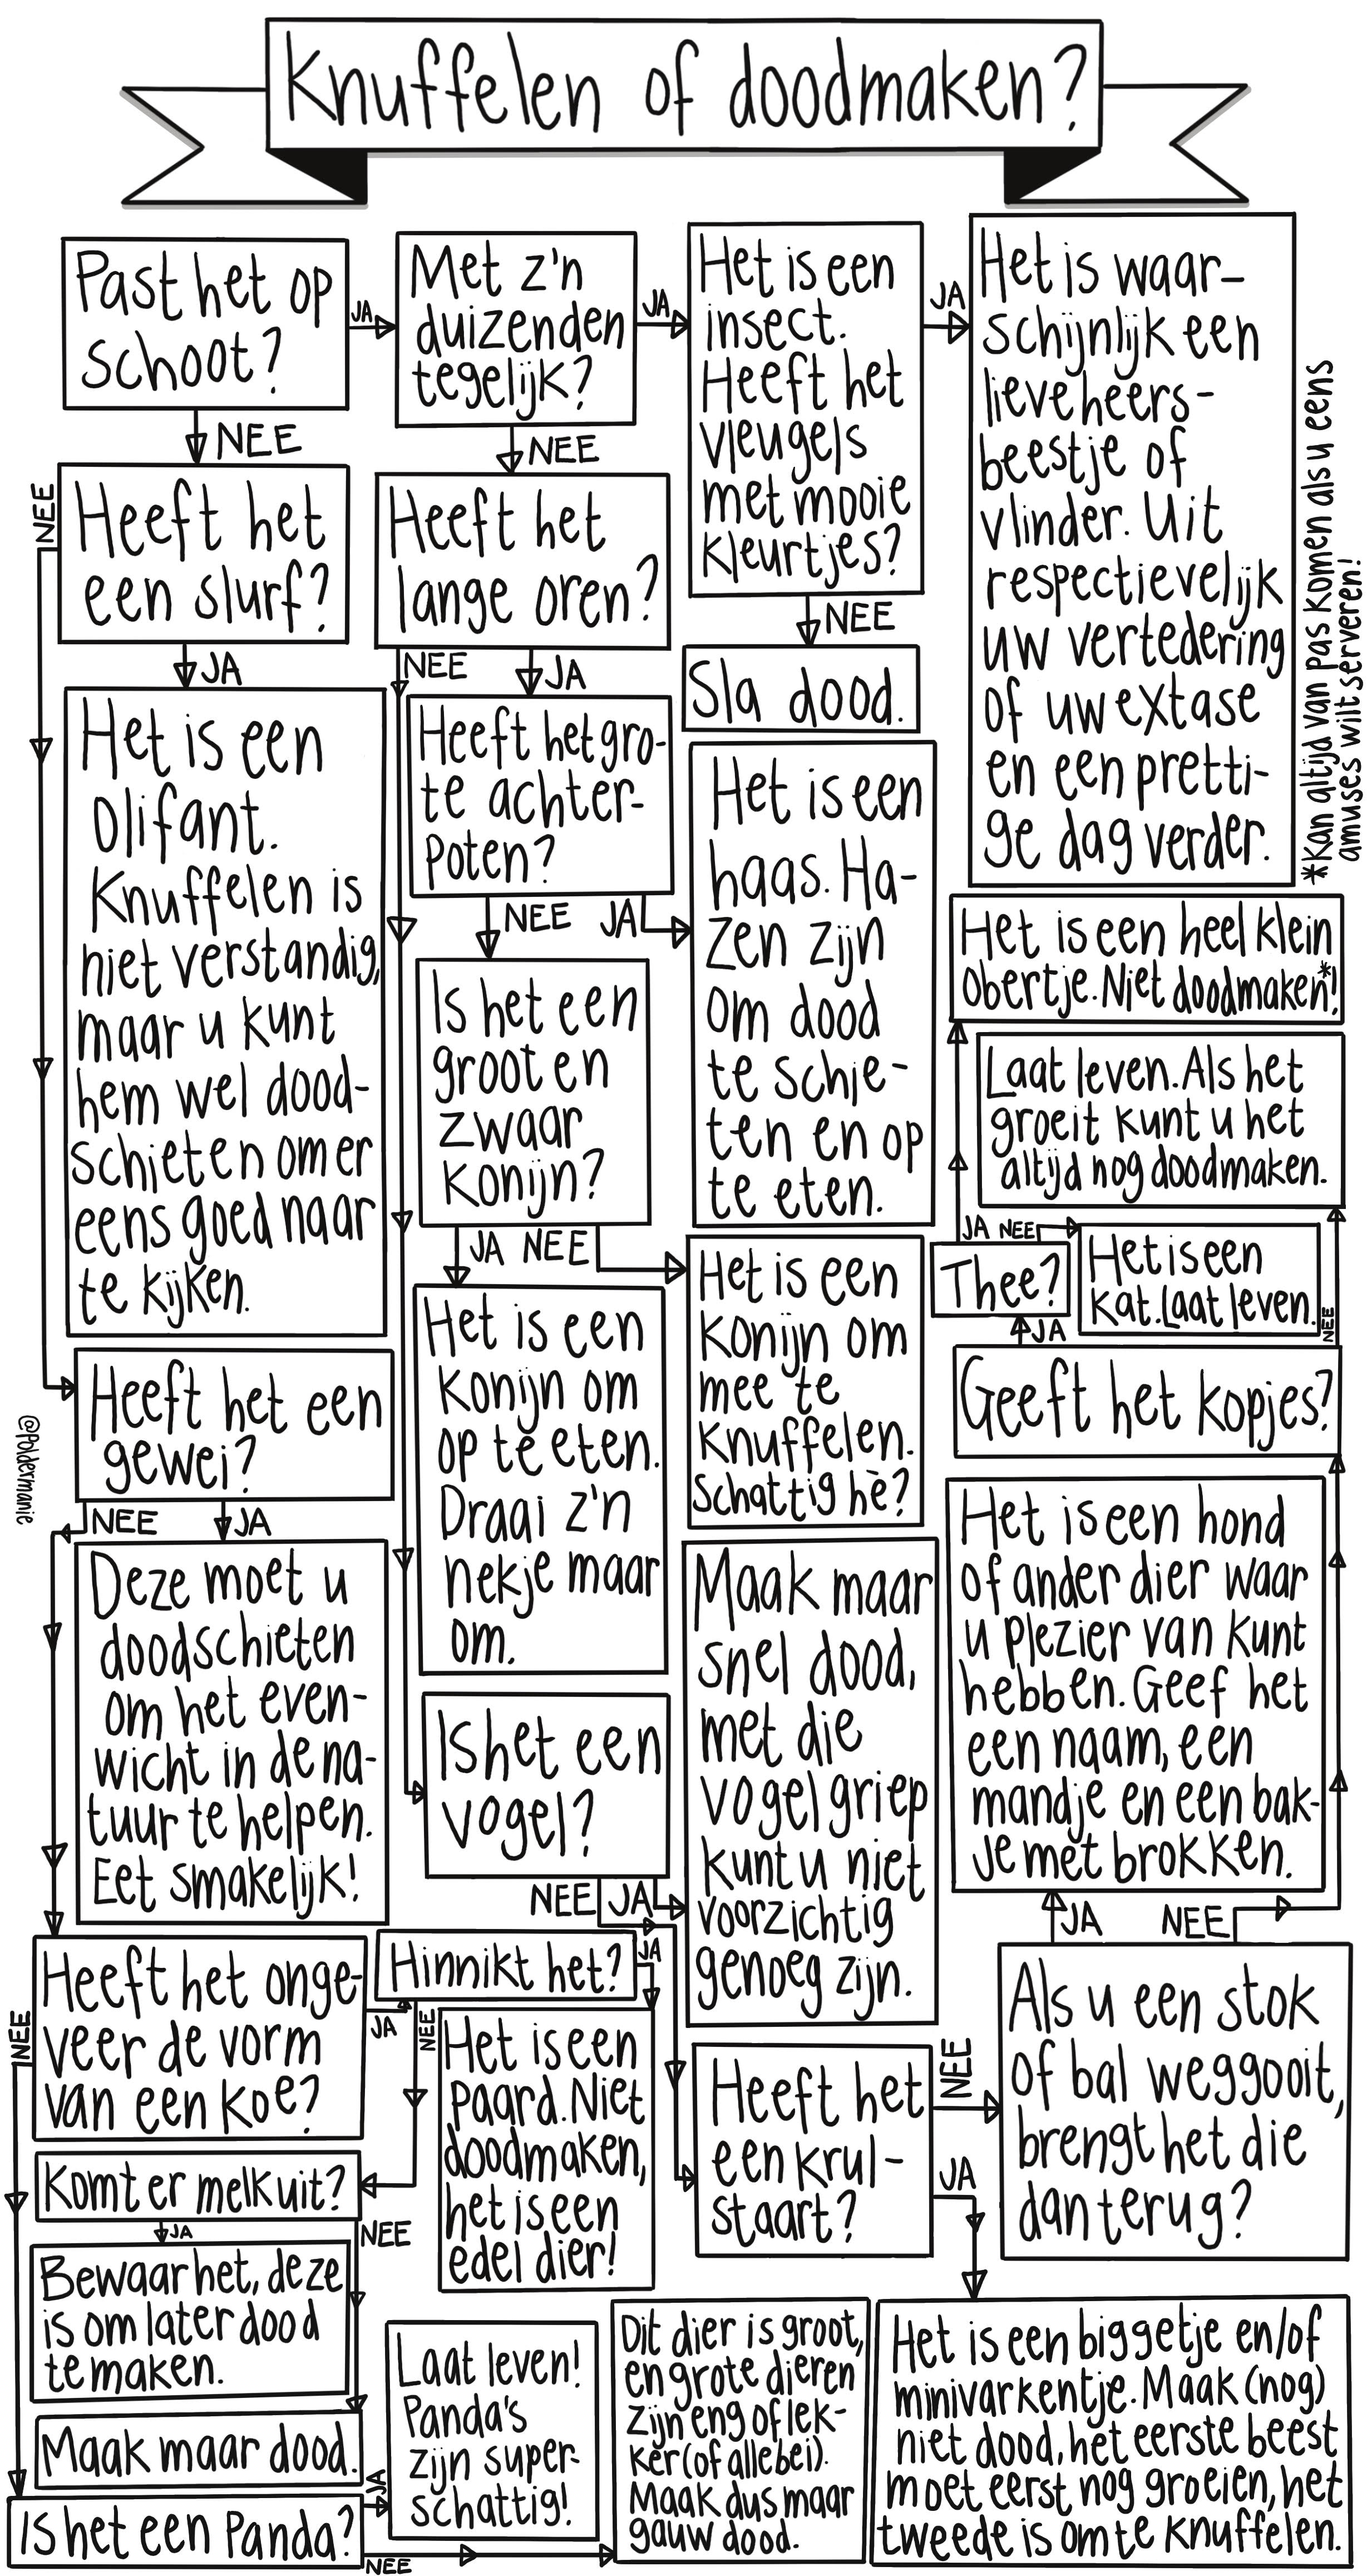 Knuffelen of doodmaken?
Past het op
schoot?
JA
NEE
Met z'n
duizenden
tegelijk?
JA
NEE
Het is een
insect.
Heeft het
vleugels
met mooie
kleurtjes?
JA
NEE
Het is waar-
schijnlijk een
lieveheers-
beestje of
vlinder. Uit
respectievelijk
uw vertedering
of uw extase
en een pretti-
ge dag verder.
*Kan altijd van pas komen als u eens
amuses wilt serveren!
Sla dood.
Heeft het
een slurf?
NEE
JA
Heeft het
lange oren?
NEE
JA
Het is een
olifant.
Knuffelen is
niet verstandig,
maar u kunt
hem wel dood-
schieten om er
eens goed naar
te kijken.
Heeft het gro-
te achter-
poten?
NEE
JA
Het is een
haas. Ha-
zen zijn
om dood
te schie-
ten en op
te eten.
Is het een
groot en
zwaar
konijn?
JA
NEE
Het is een heel klein
obertje. Niet doodmaken*!
Laat leven. Als het
groeit kunt u het
altijd nog doodmaken.
JA
NEE
Thee?
Het is een
kat. Laat leven.
JA
NEE
Geeft het kopjes?
Het is een
konijn om
op te eten.
Draai z'n
nekje maar
om.
Het is een
konijn om
mee te
knuffelen.
Schattig hè?
Heeft het een
gewei?
NEE
JA
@Poldermanie
Deze moet u
doodschieten
om het even-
wicht in de na-
tuur te helpen.
Eet smakelijk!
Is het een
vogel?
NEE
JA
Maak maar
snel dood,
met die
vogelgriep
kunt u niet
voorzichtig
genoeg zijn.
Het is een hond
of ander dier waar
u plezier van kunt
hebben. Geef het
een naam, een
mandje en een bak-
je met brokken.
JA
NEE
Heeft het onge-
veer de vorm
van een koe?
NEE
JA
Hinnikt het?
JA
NEE
Het is een
paard. Niet
doodmaken,
het is een
edel dier!
Heeft het
een krul-
staart?
NEE
JA
Als u een stok
of bal weggooit,
brengt het die
dan terug?
Komt er melk uit?
JA
NEE
Bewaar het, deze
is om later dood
te maken.
Maak maar dood.
Is het een Panda?
JA
NEE
Laat leven!
Panda's
zijn super-
schattig!
Dit dier is groot,
en grote dieren
zijn eng of lek-
ker (of allebei).
Maak dus maar
gauw dood.
Het is een biggetje en/of
minivarkentje. Maak (nog)
niet dood, het eerste beest
moet eerst nog groeien, het
tweede is om te knuffelen.